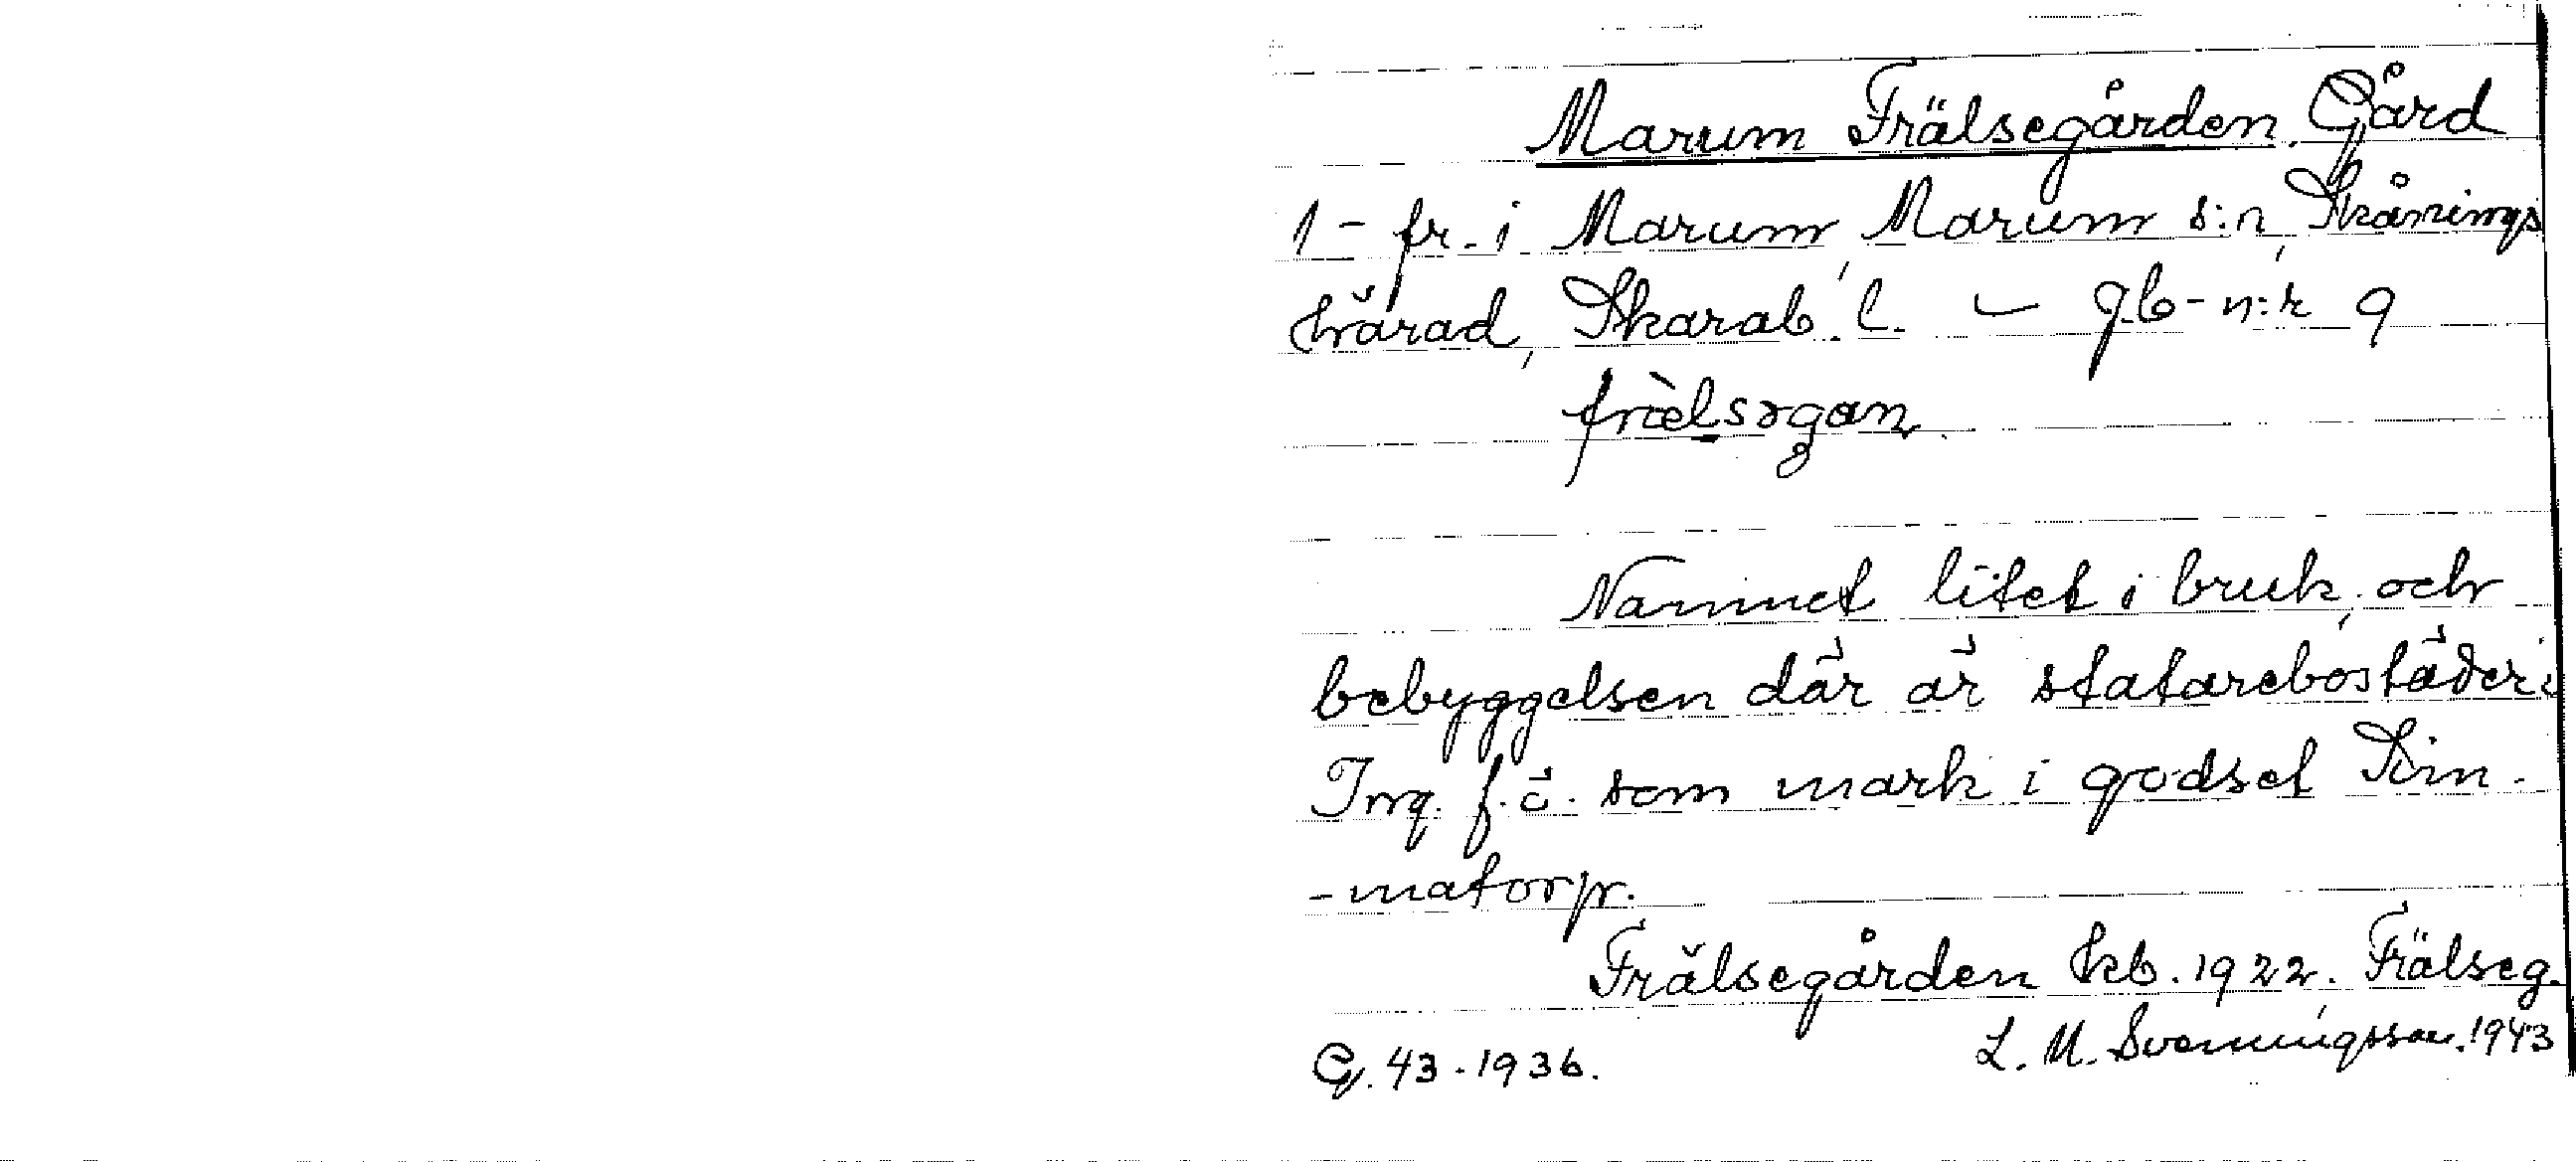 Marum Frälsegården. Gård
1 - fr. i Marum, Marum s:n, Skånings
härad, Skarab. l. – jb-n:r 9
frièlsəgan
Namnet litet i bruk, och
bebyggelsen där är statarebostäder.
Ing. f. ö. som mark i godset Sim-
-matorp.
Frälsegården kb. 1922. Frälseg.
L. M. Svenningsson. 1943
G. 43. 1936.